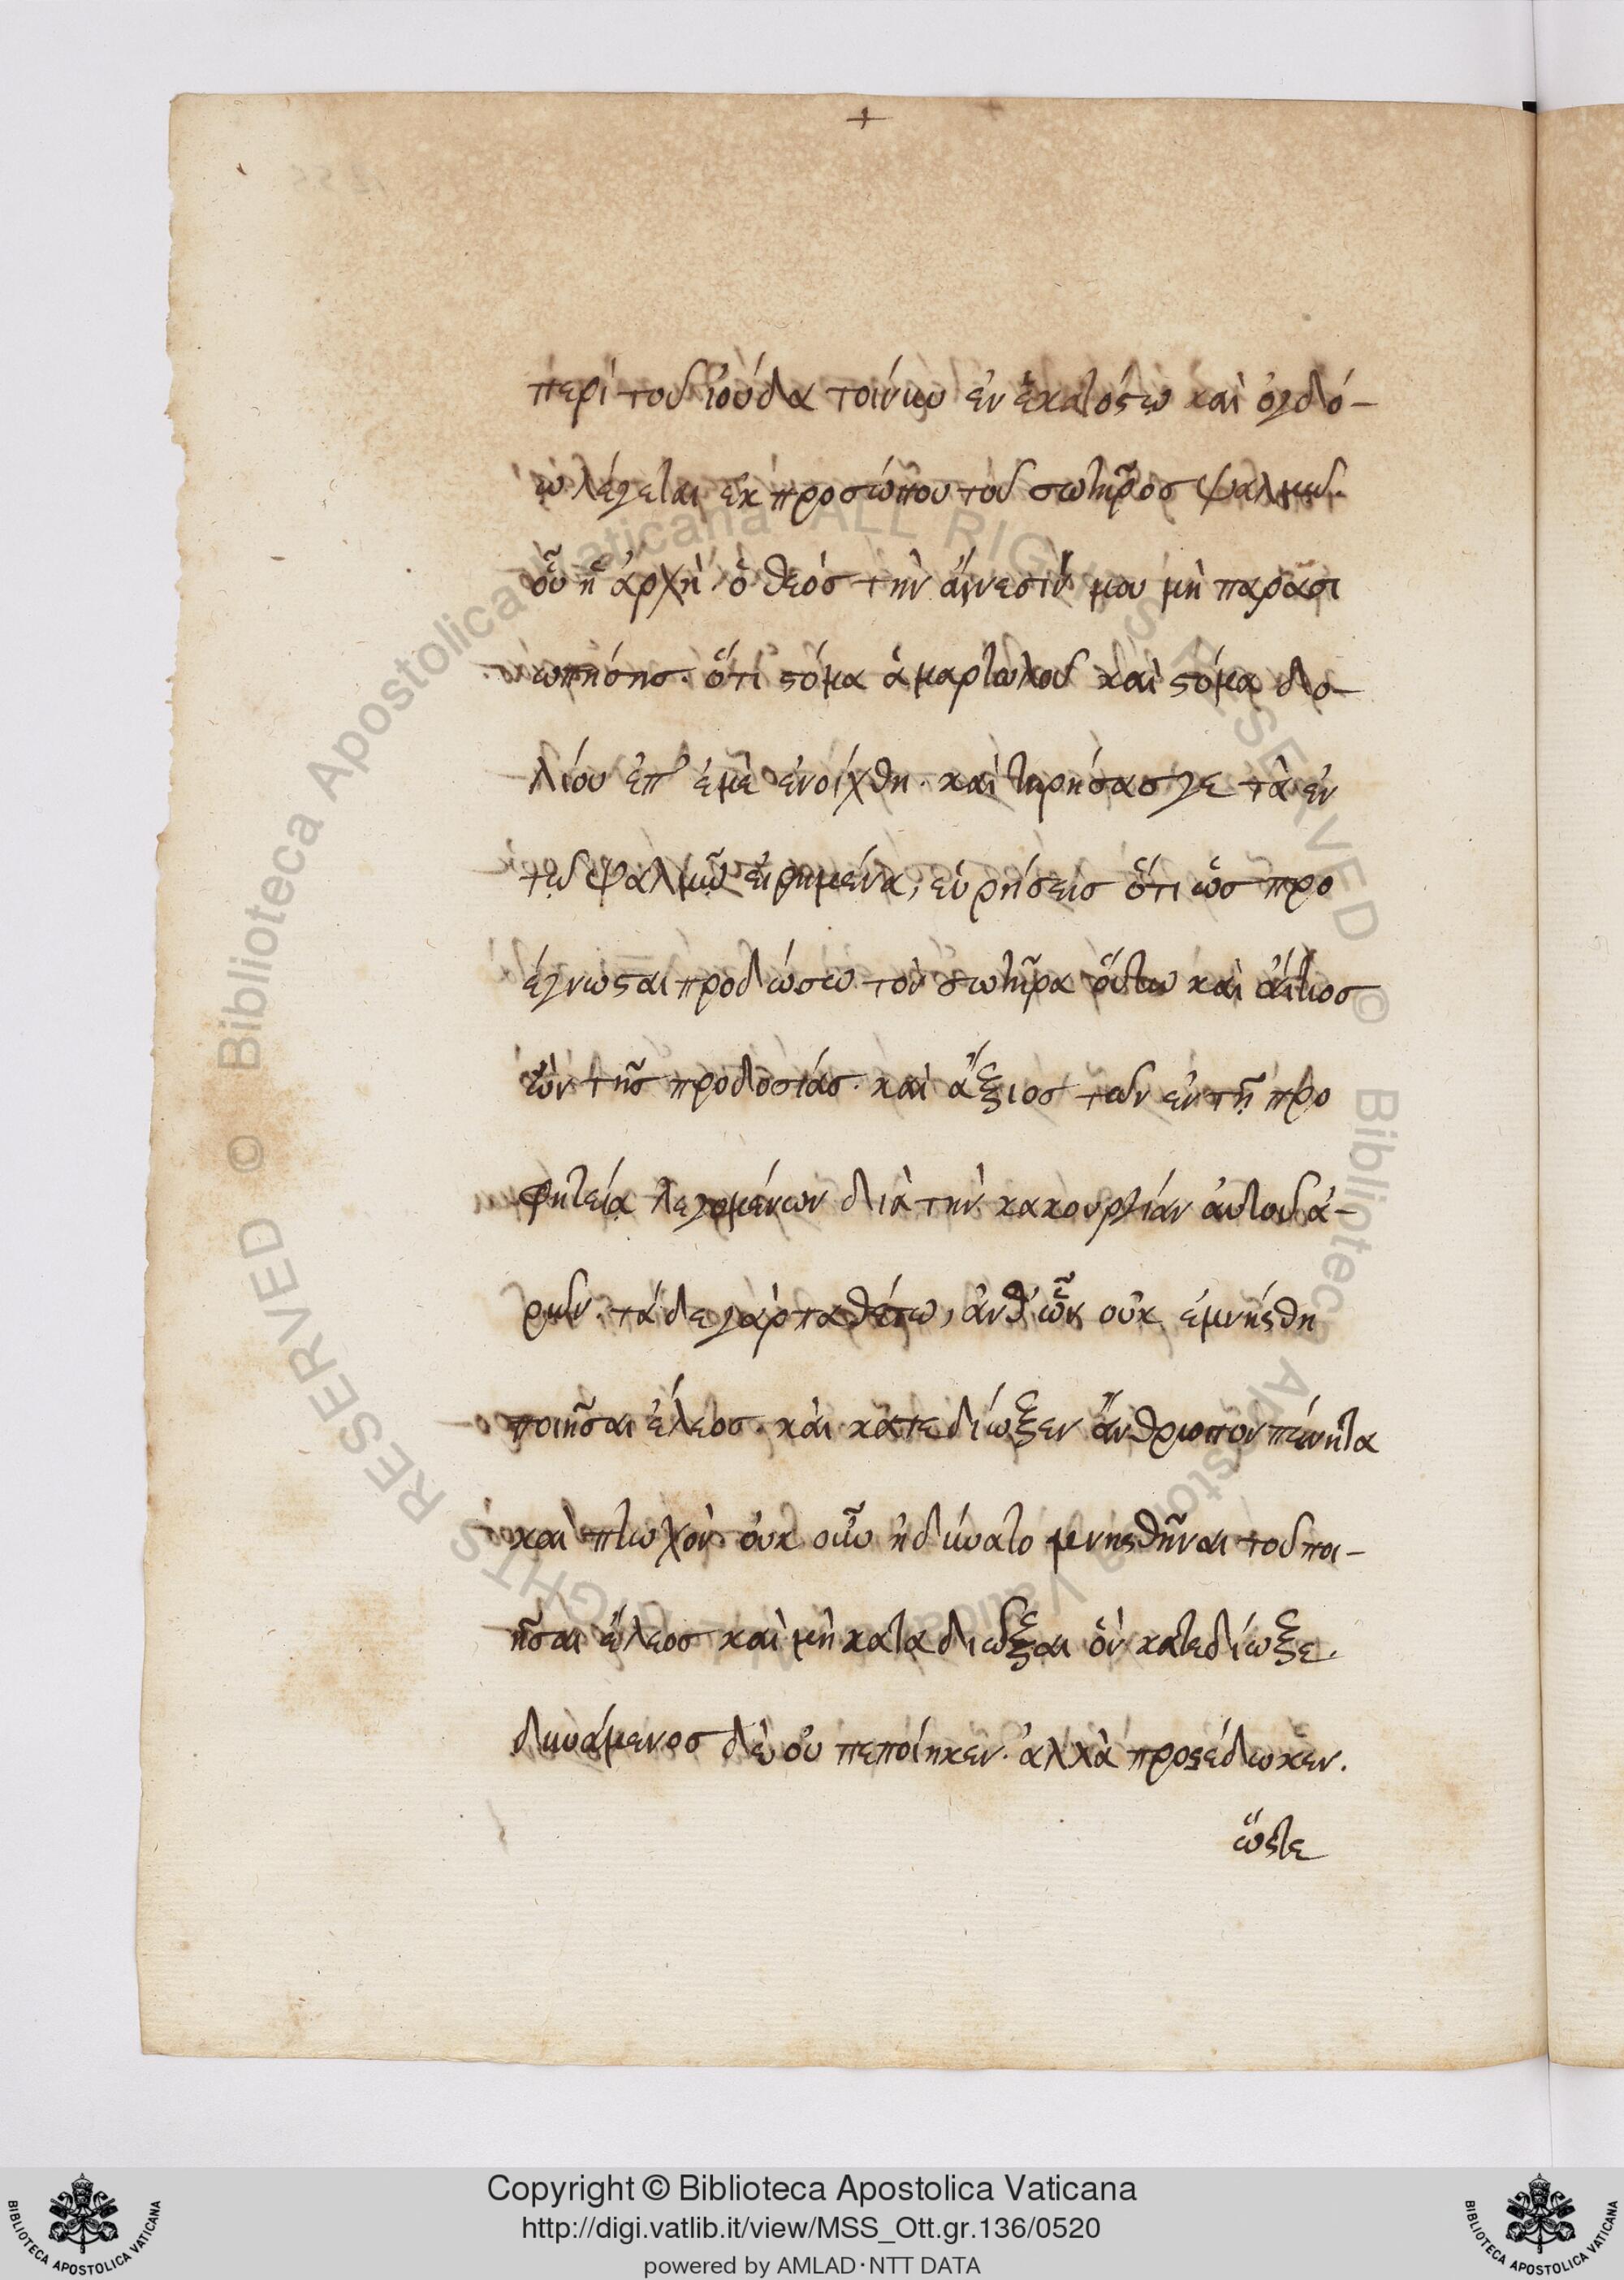 +
περὶ τοῦ ἰούδα τοίνυν ἐν ἑκατοστῷ καὶ ὀγδό-
ῳ λέγεται ἐκ προσώπου τοῦ σωτῆρος ψαλμῷ.
οὗ ἡ ἀρχὴ· ὁ θεός τὴν αἴνεσίν μου μὴ παρασι
ωπήσης. ὅτι στόμα ἁμαρτωλοῦ καὶ στόμα δο-
λίου ἐπ' ἐμὲ ἐνοίχθη. καὶ τηρήσας γε τὰ ἐν
τῷ ψαλμῷ εἰρημένα, εὑρήσεις ὅτι ὥς προ
έγνωσται προδώσων τὸν σωτῆρα οὕτω καὶ αἴτιος
ὢν τῆς προδοσίας. καὶ ἄξιος τῶν ἐν τῇ προ
φητείᾳ λεγομένων διὰ τὴν κακουργίαν αὐτοῦ ἀ-
ρῶν. τάδε γὰρ παθέτω, ἀνθ' ὧν οὐκ ἐμνήσθη
ποιῆσαι ἔλεος. καὶ κατεδίωξεν ἄνθρωπον πένητα
καὶ πτωχὸν. οὐκ οὖν ἠδύνατο μνησθῆναι τοῦ ποι-
ῆσαι ἔλεος καὶ μὴ καταδιῶξαι ὃν κατεδίωξε.
δυνάμενος δὲ οὐ πεποίηκεν. ἀλλὰ προσέδωκεν.
ὥστε
Copyright © Biblioteca Apostolica Vaticana
http://digi.vatlib.it/view/MSS_Ott.gr.136/0520
powered by AMLAD·NTT DATA
© Biblioteca Apostolica Vaticana ALL RIGHTS RESERVED
© Biblioteca Apostolica Vaticana ALL RIGHTS RESERVED
BIBLIOTECA APOSTOLICA VATICANA
BIBLIOTECA APOSTOLICA VATICANA